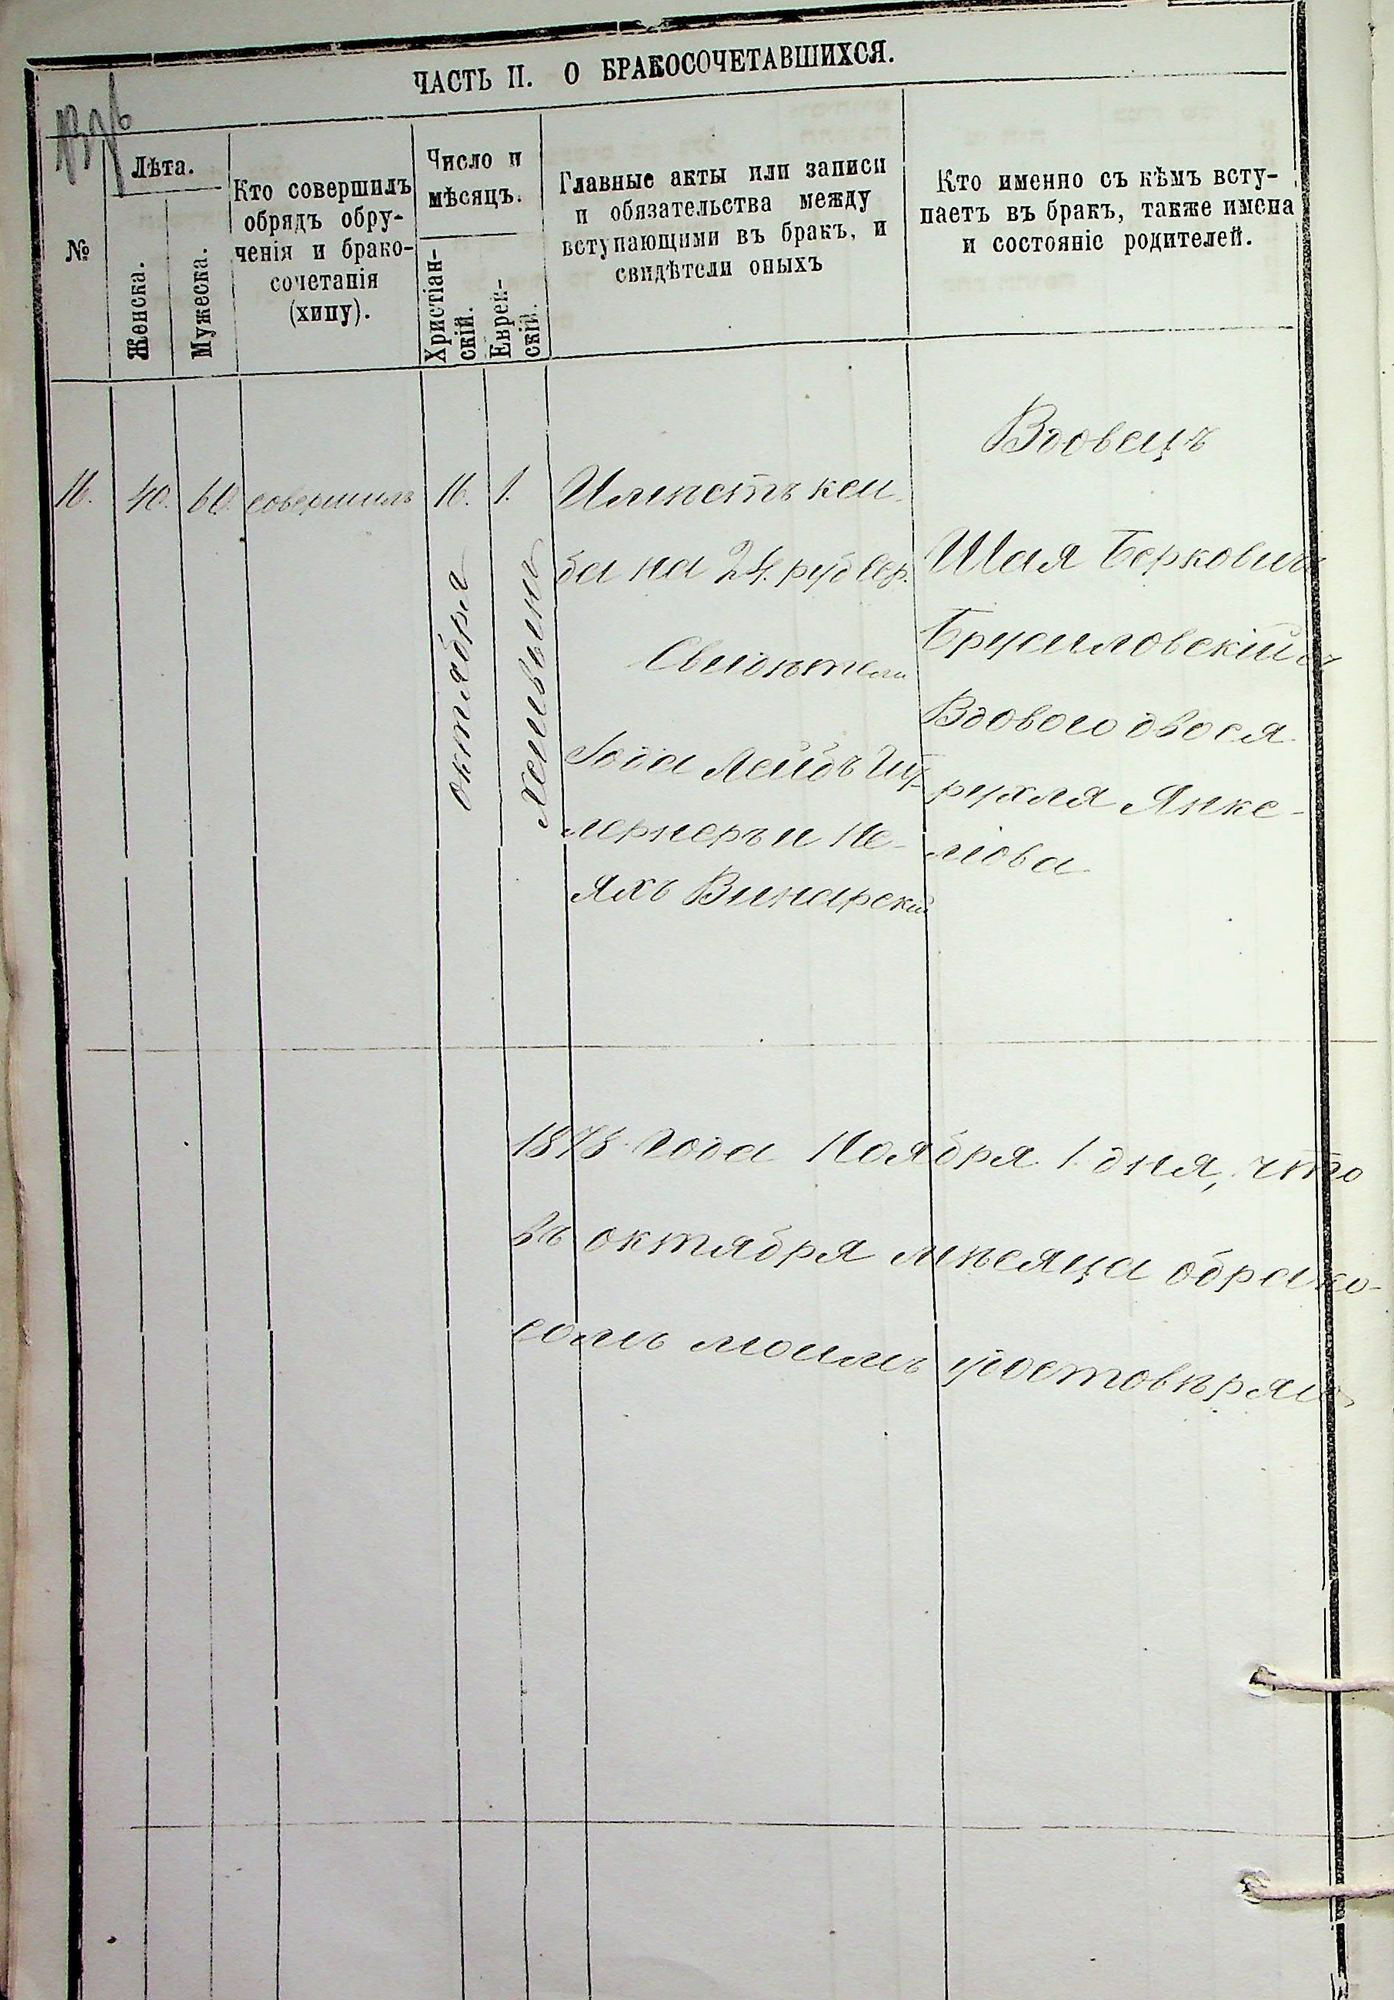 ЧАСТЬ II. О БРАКОСОЧЕТАВШИХСЯ.
№
Лѣта.
Женска.
Мужеска.
Кто совершилъ
обрядъ обру-
ченія и брако-
сочетанія
(хипу).
Число и
мѣсяцъ.
Христіан-
скій.
Еврей-
скій.
Главные акты или записи
и обязательства между
вступающими въ бракъ, и
свидѣтели оныхъ
Кто именно съ кѣмъ всту-
паетъ въ бракъ, также имена
и состояніе родителей.
16.
40.
60.
совершилъ
16.
октября
1.
хешвынъ
Имѣетъ кеи-
ба на 24. руб сер.
Свидѣтели
Лейбъ
и Не-
яхъ Винарскій
Вдовецъ
Шая Берковичъ
Брусиловскій съ
Вдовою двося
рухля Янке-
лова
1878 Года Ноября 1. дня, что
въ октября мѣсяца обрако-
моимъ удостовѣряю